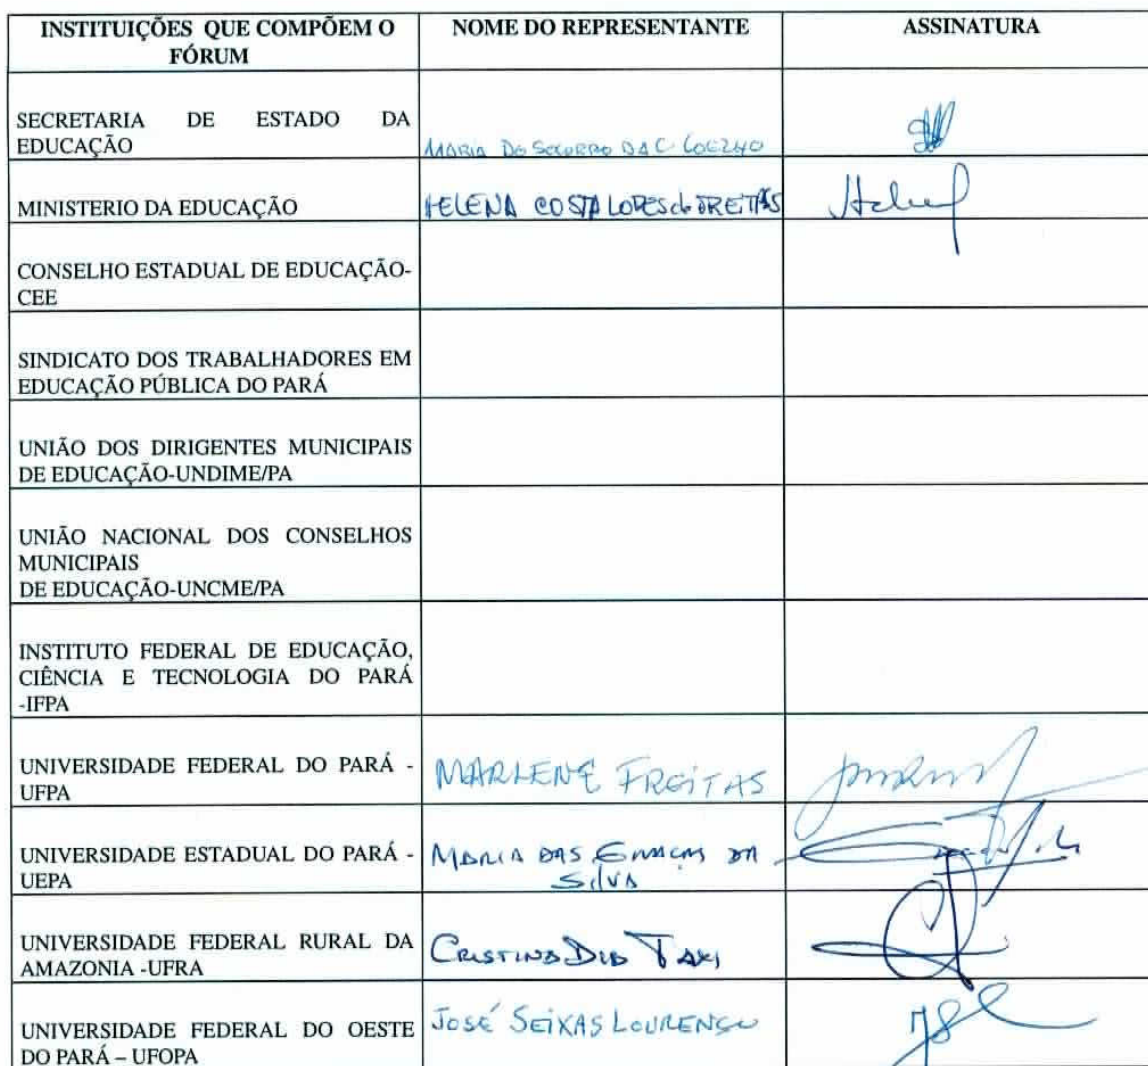 INSTITUIÇÕES QUE COMPÕEM O FÓRUM
NOME DO REPRESENTANTE
ASSINATURA
SECRETARIA DE ESTADO DA
EDUCAÇÃO
MARIA DO SOCORRO DA C COELHO
MINISTERIO DA EDUCAÇÃO
HELENA COSTA LOPES de FREITAS
CONSELHO ESTADUAL DE EDUCAÇÃO-
CEE
SINDICATO DOS TRABALHADORES EM
EDUCAÇÃO PÚBLICA DO PARÁ
UNIÃO DOS DIRIGENTES MUNICIPAIS
DE EDUCAÇÃO-UNDIME/PA
UNIÃO NACIONAL DOS CONSELHOS
MUNICIPAIS
DE EDUCAÇÃO-UNCME/PA
INSTITUTO FEDERAL DE EDUCAÇÃO,
CIÊNCIA E TECNOLOGIA DO PARÁ
-IFPA
UNIVERSIDADE FEDERAL DO PARÁ -
UFPA
MARLENE FREITAS
UNIVERSIDADE ESTADUAL DO PARÁ -
UEPA
MARIA DAS GRAÇAS DA
SILVA
UNIVERSIDADE FEDERAL RURAL DA
AMAZONIA -UFRA
CRISTINA
UNIVERSIDADE FEDERAL DO OESTE
DO PARÁ – UFOPA
JOSÉ SEIXAS LOURENÇO